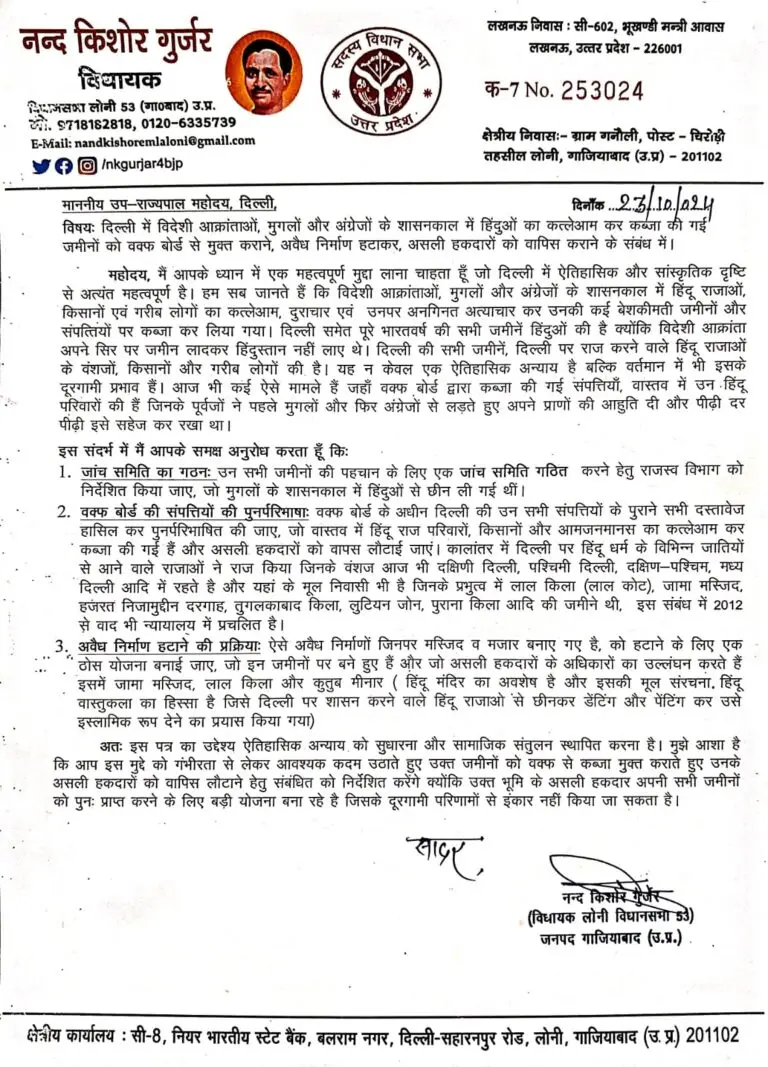 नन्द किशोर गुर्जर
विधायक
विधानसभा लोनी 53 (गा0बाद) उ.प्र.
मो. 9718182818, 0120-6335739
E-Mail: nandkishoremlaloni@gmail.com
/nkgurjar4bjp
सदस्य विधान सभा
उत्तर प्रदेश
लखनऊ निवास : सी-602, भूखण्डी मन्त्री आवास
लखनऊ, उत्तर प्रदेश - 226001
क-7 No. 253024
क्षेत्रीय निवासः- ग्राम गनौली, पोस्ट - चिरोड़ी
तहसील लोनी, गाजियाबाद (उ.प्र) - 201102
माननीय उप-राज्यपाल महोदय, दिल्ली,
दिनाँक ...23/10/2024
विषयः दिल्ली में विदेशी आक्रांताओं, मुगलों और अंग्रेजों के शासनकाल में हिंदुओं का कत्लेआम कर कब्जा की गई
जमीनों को वक्फ बोर्ड से मुक्त कराने, अवैध निर्माण हटाकर, असली हकदारों को वापिस कराने के संबंध में।
महोदय, मैं आपके ध्यान में एक महत्वपूर्ण मुद्दा लाना चाहता हूँ जो दिल्ली में ऐतिहासिक और सांस्कृतिक दृष्टि
से अत्यंत महत्वपूर्ण है। हम सब जानते हैं कि विदेशी आक्रांताओं, मुगलों और अंग्रेजों के शासनकाल में हिंदू राजाओं,
किसानों एवं गरीब लोगों का कत्लेआम, दुराचार एवं उनपर अनगिनत अत्याचार कर उनकी कई बेशकीमती जमीनों और
संपत्तियों पर कब्जा कर लिया गया। दिल्ली समेत पूरे भारतवर्ष की सभी जमीनें हिंदुओं की है क्योंकि विदेशी आक्रांता
अपने सिर पर जमीन लादकर हिंदुस्तान नहीं लाए थे। दिल्ली की सभी जमीनें, दिल्ली पर राज करने वाले हिंदू राजाओं
के वंशजों, किसानों और गरीब लोगों की है। यह न केवल एक ऐतिहासिक अन्याय है बल्कि वर्तमान में भी इसके
दूरगामी प्रभाव हैं। आज भी कई ऐसे मामले हैं जहाँ वक्फ बोर्ड द्वारा कब्जा की गई संपत्तियाँ, वास्तव में उन हिंदू
परिवारों की हैं जिनके पूर्वजों ने पहले मुगलों और फिर अंग्रेजों से लड़ते हुए अपने प्राणों की आहुति दी और पीढ़ी दर
पीढ़ी इसे सहेज कर रखा था।
इस संदर्भ में मैं आपके समक्ष अनुरोध करता हूँ कि:
1. जांच समिति का गठनः उन सभी जमीनों की पहचान के लिए एक जांच समिति गठित करने हेतु राजस्व विभाग को
निर्देशित किया जाए, जो मुगलों के शासनकाल में हिंदुओं से छीन ली गई थीं।
2. वक्फ बोर्ड की संपत्तियों की पुनर्परिभाषाः वक्फ बोर्ड के अधीन दिल्ली की उन सभी संपत्तियों के पुराने सभी दस्तावेज
हासिल कर पुनर्परिभाषित की जाए, जो वास्तव में हिंदू राज परिवारों, किसानों और आमजनमानस का कत्लेआम कर
कब्जा की गई हैं और असली हकदारों को वापस लौटाई जाएं। कालांतर में दिल्ली पर हिंदू धर्म के विभिन्न जातियों
से आने वाले राजाओं ने राज किया जिनके वंशज आज भी दक्षिणी दिल्ली, पश्चिमी दिल्ली, दक्षिण-पश्चिम, मध्य
दिल्ली आदि में रहते है और यहां के मूल निवासी भी है जिनके प्रभुत्व में लाल किला (लाल कोट), जामा मस्जिद,
हजरत निजामुद्दीन दरगाह, तुगलकाबाद किला, लुटियन जोन, पुराना किला आदि की जमीने थी, इस संबंध में 2012
से वाद भी न्यायालय में प्रचलित है।
3. अवैध निर्माण हटाने की प्रक्रियाः ऐसे अवैध निर्माणों जिनपर मस्जिद व मजार बनाए गए है, को हटाने के लिए एक
ठोस योजना बनाई जाए, जो इन जमीनों पर बने हुए हैं और जो असली हकदारों के अधिकारों का उल्लंघन करते हैं
इसमें जामा मस्जिद, लाल किला और कुतुब मीनार ( हिंदू मंदिर का अवशेष है और इसकी मूल संरचना, हिंदू
वास्तुकला का हिस्सा है जिसे दिल्ली पर शासन करने वाले हिंदू राजाओ से छीनकर डेंटिंग और पेंटिंग कर उसे
इस्लामिक रूप देने का प्रयास किया गया)
अतः इस पत्र का उद्देश्य ऐतिहासिक अन्याय को सुधारना और सामाजिक संतुलन स्थापित करना है। मुझे आशा है
कि आप इस मुद्दे को गंभीरता से लेकर आवश्यक कदम उठाते हुए उक्त जमीनों को वक्फ से कब्जा मुक्त कराते हुए उनके
असली हकदारों को वापिस लौटाने हेतु संबंधित को निर्देशित करेंगे क्योंकि उक्त भूमि के असली हकदार अपनी सभी जमीनों
को पुनः प्राप्त करने के लिए बड़ी योजना बना रहे है जिसके दूरगामी परिणामों से इंकार नहीं किया जा सकता है।
सादर,
नन्द किशोर गुर्जर
(विधायक लोनी विधानसभा 53)
जनपद गाजियाबाद (उ.प्र.)
क्षेत्रीय कार्यालय : सी-8, नियर भारतीय स्टेट बैंक, बलराम नगर, दिल्ली-सहारनपुर रोड, लोनी, गाजियाबाद (उ. प्र.) 201102